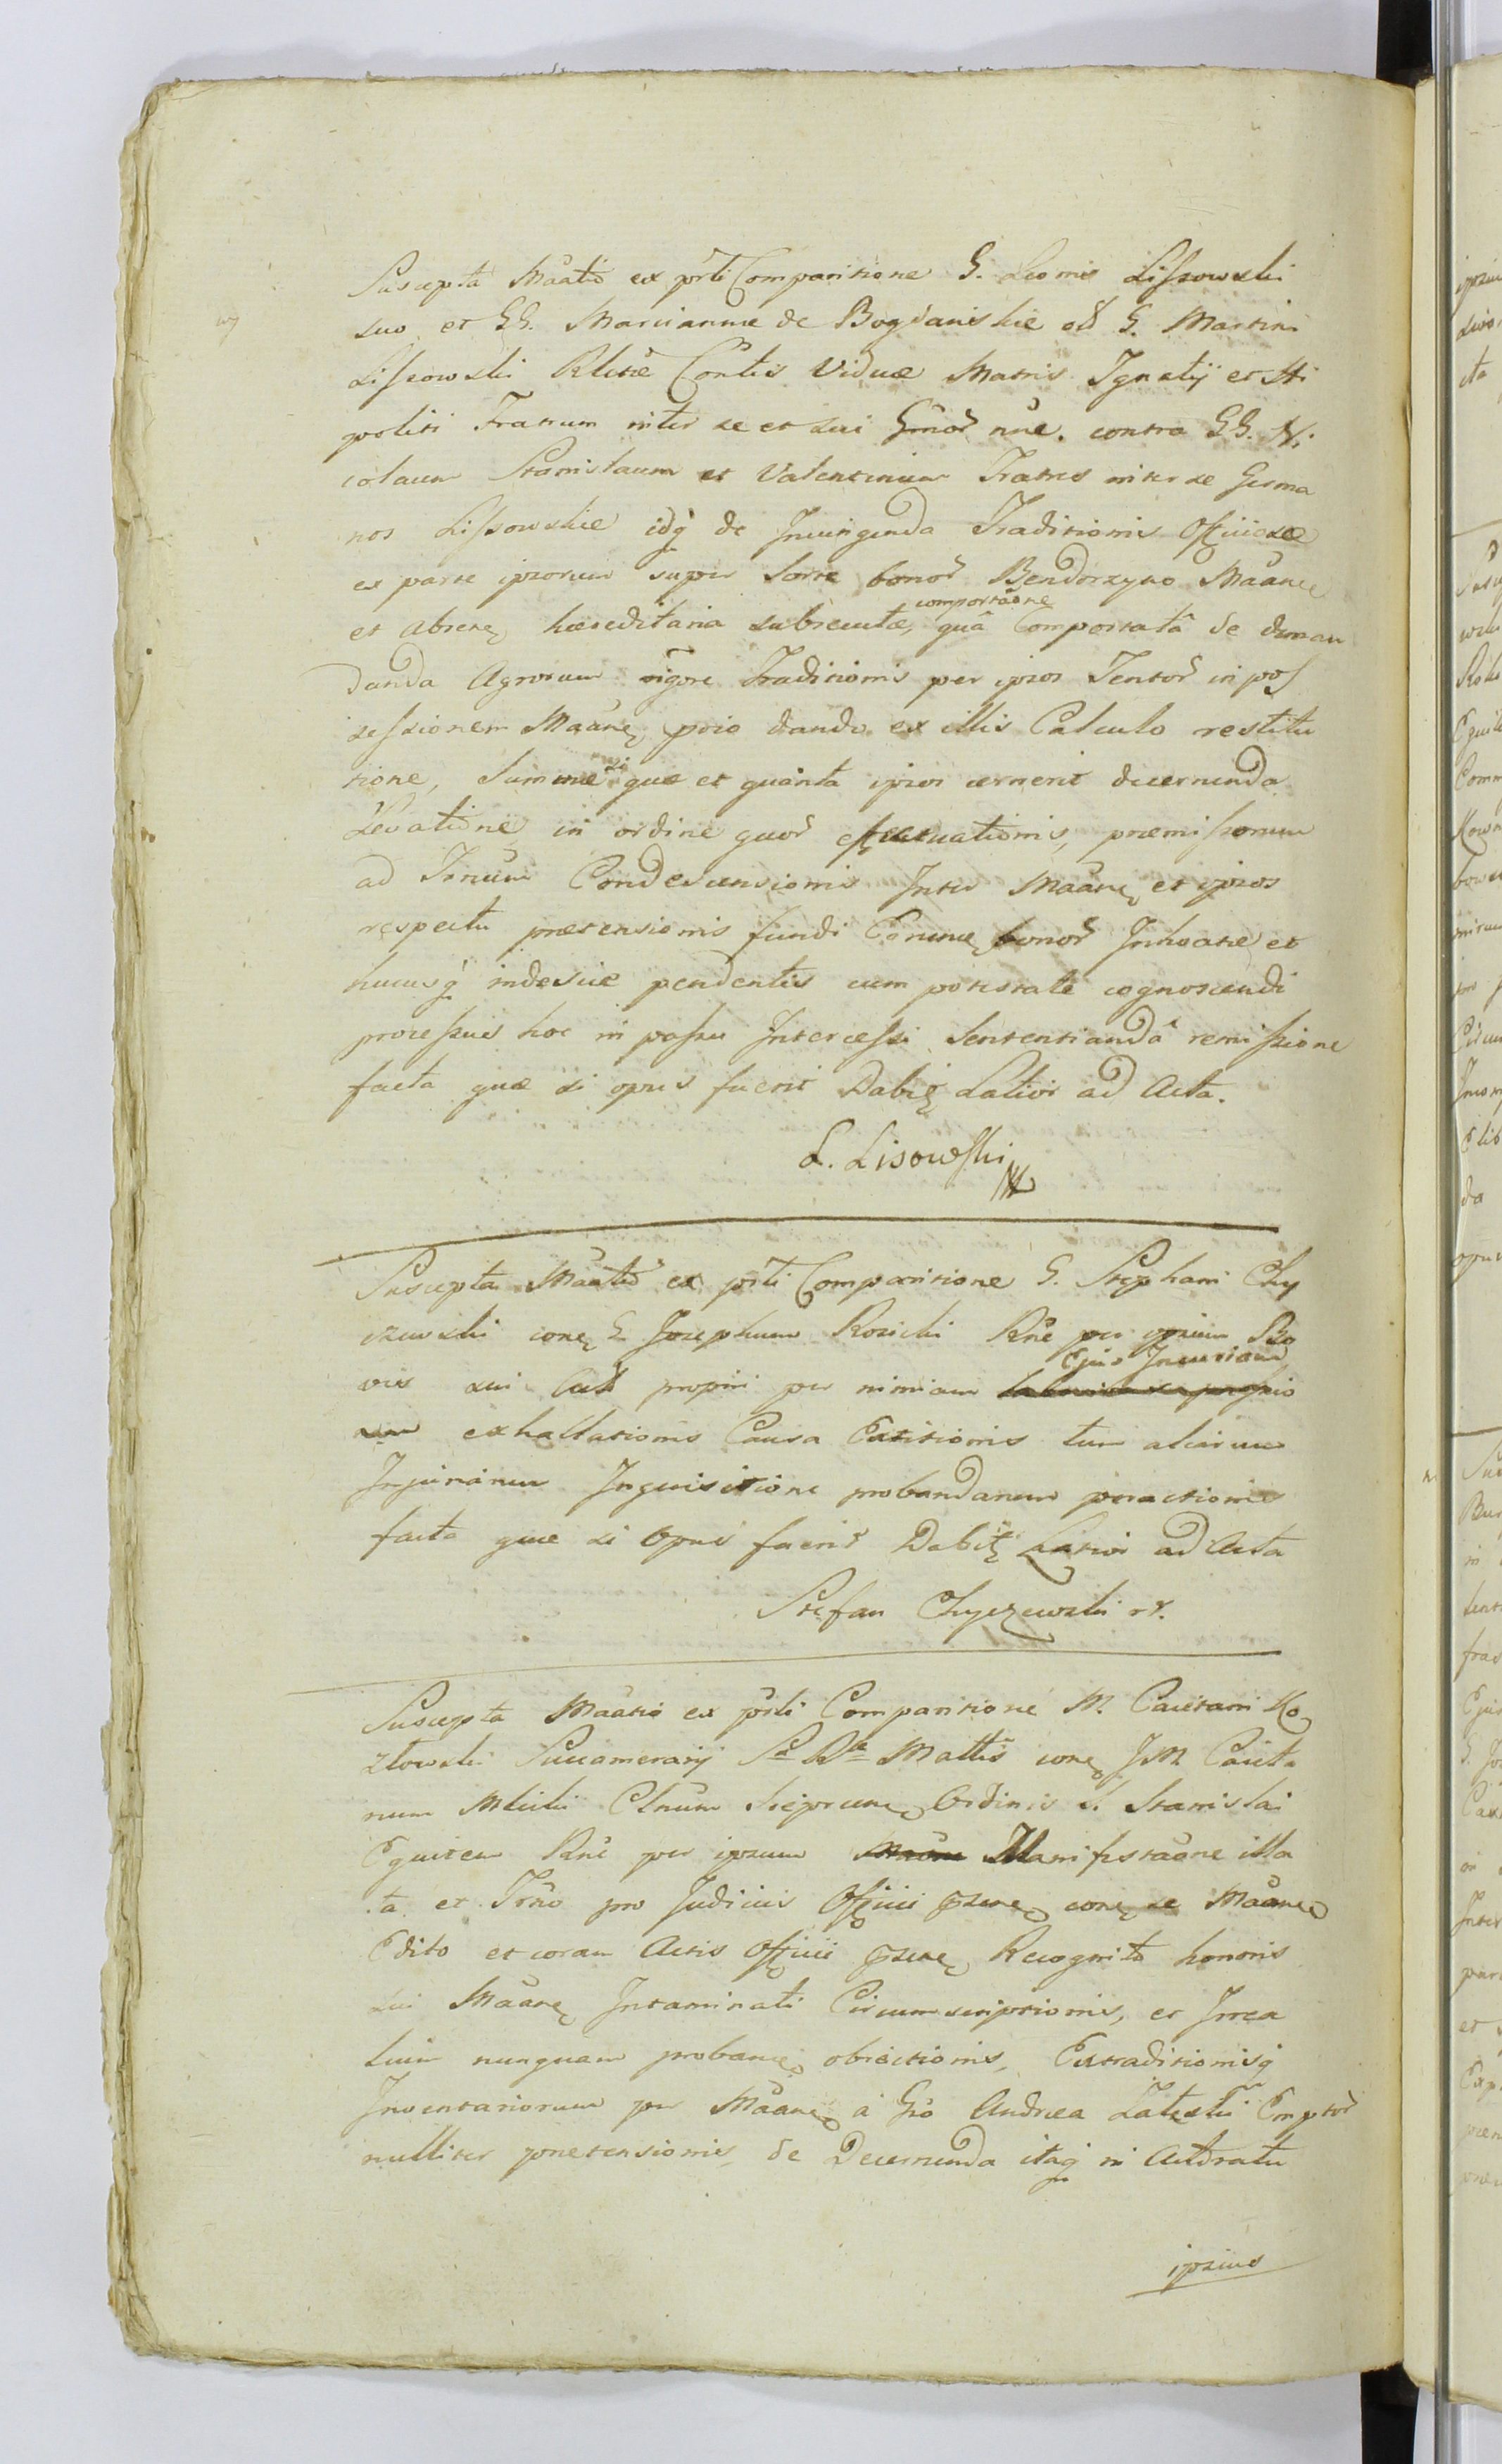 Suscepta Maãtio ex prti Comparitione G. Leonis Lissowski
suo et GG. Mariannæ de Bogdanskie olĩ G. Martini
Lissowski Rlctæ Cõrtis Viduæ Matris Ignatij et Hi
politi Fratrum inter se et sui Gmõr nñe. contra GG. Ni
colaum Stanislaum et Valentinum Fratres inter se Germa
nos Lissowskie idq̃ de Iniungenda Traditionis Officiosæ
ex parte ipsorum super sorte bonor̃ Bendorzyno Maãne
et absene hæreditaria subsecutæ, quâ comportaõne Comportatâ de deman
danda Agrorum vigore Traditionis per ipsos Tentor̃ in pos
sessionem Maãne, prio dando ex illis Calculo restitu
tione, Summæ si quæ et quanta ipsos cernerit decernenda
Levatione in ordine quor̃ effectuationis, præmissorum
ad Trñum Condescensionis Inter Maãne et ipsos
respectu prætensionis fundi Eorunde bonor̃ Inhoatæ et
hucusq̃ indesiæ pendentis cum potestate cognoscendi
processus hoc in passu Intercessi Sententiandâ remissione
facta quæ si opus fuerit Dabit Latior ad Acta.
L. Lisowski
Suscepta Maãtio ex prti Comparitione G. Stephani Chy
czewski cone G Josephum Rosicki Rñe per ipsum Bo
vis sui proprii per nimiam Ejus Incuriam
exhallationis Causa Extitionis tum aliarum
Injuriarum Inquisitione probandarum peractionis
facta quæ si Opus fuerit Dabit Latior ad Acta
Stefan Chyczewski
Suscepta Maãtio ex prti Comparitione M. Caietani Ko
złowski Succamerarij Mattis cone J M. Caieta
num Ordinis S. Stanislai
Equitem Rñe per ipsum Manifestaõne illa
ta et Trño pro Judiciis Officii psene cone se Maãne
Edito et coram Actis Officii psene Recognito honoris
sui Maãne Intaminati Circumscriptionis, et Irrea
lium nunquam probane obiectionis, Extraditionisq̃
Inventariorum per Maãne a Gso Andrea Emptor̃
nulliter prætensionis, de Decernenda itaq̃ in Actoratu
ipsius